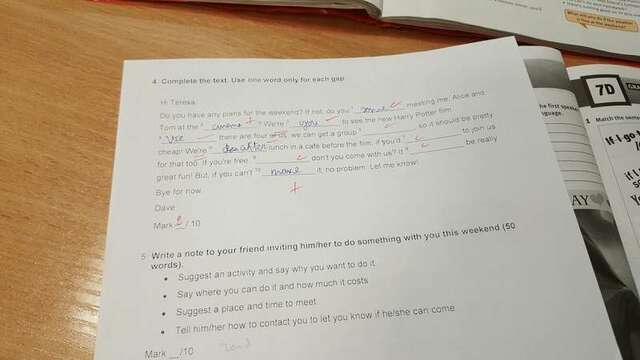 4 Complete the text. Use one word only for each gap.
Hi Teresa,
Do you have any plans for the weekend? If not, do you 1 meeting me, Alice and
Tom at the 2 cinema ? We're 3 you to see the new Harry Potter film.
4 Use there are four of us, we can get a group 5 , so it should be pretty
cheap! We're 6 lunch in a café before the film, if you'd 7 to join us
for that too. If you're free, 8 don't you come with us? It 9 be really
great fun! But, if you can't 10 make it, no problem. Let me know!
Bye for now.
Dave
Mark /10
5 Write a note to your friend inviting him/her to do something with you this weekend (50
words).
• Suggest an activity and say why you want to do it
• Say where you can do it and how much it costs
• Suggest a place and time to meet
• Tell him/her how to contact you to let you know if he/she can come
Mark __/10
7D
1 Match the sente
If I g
if I